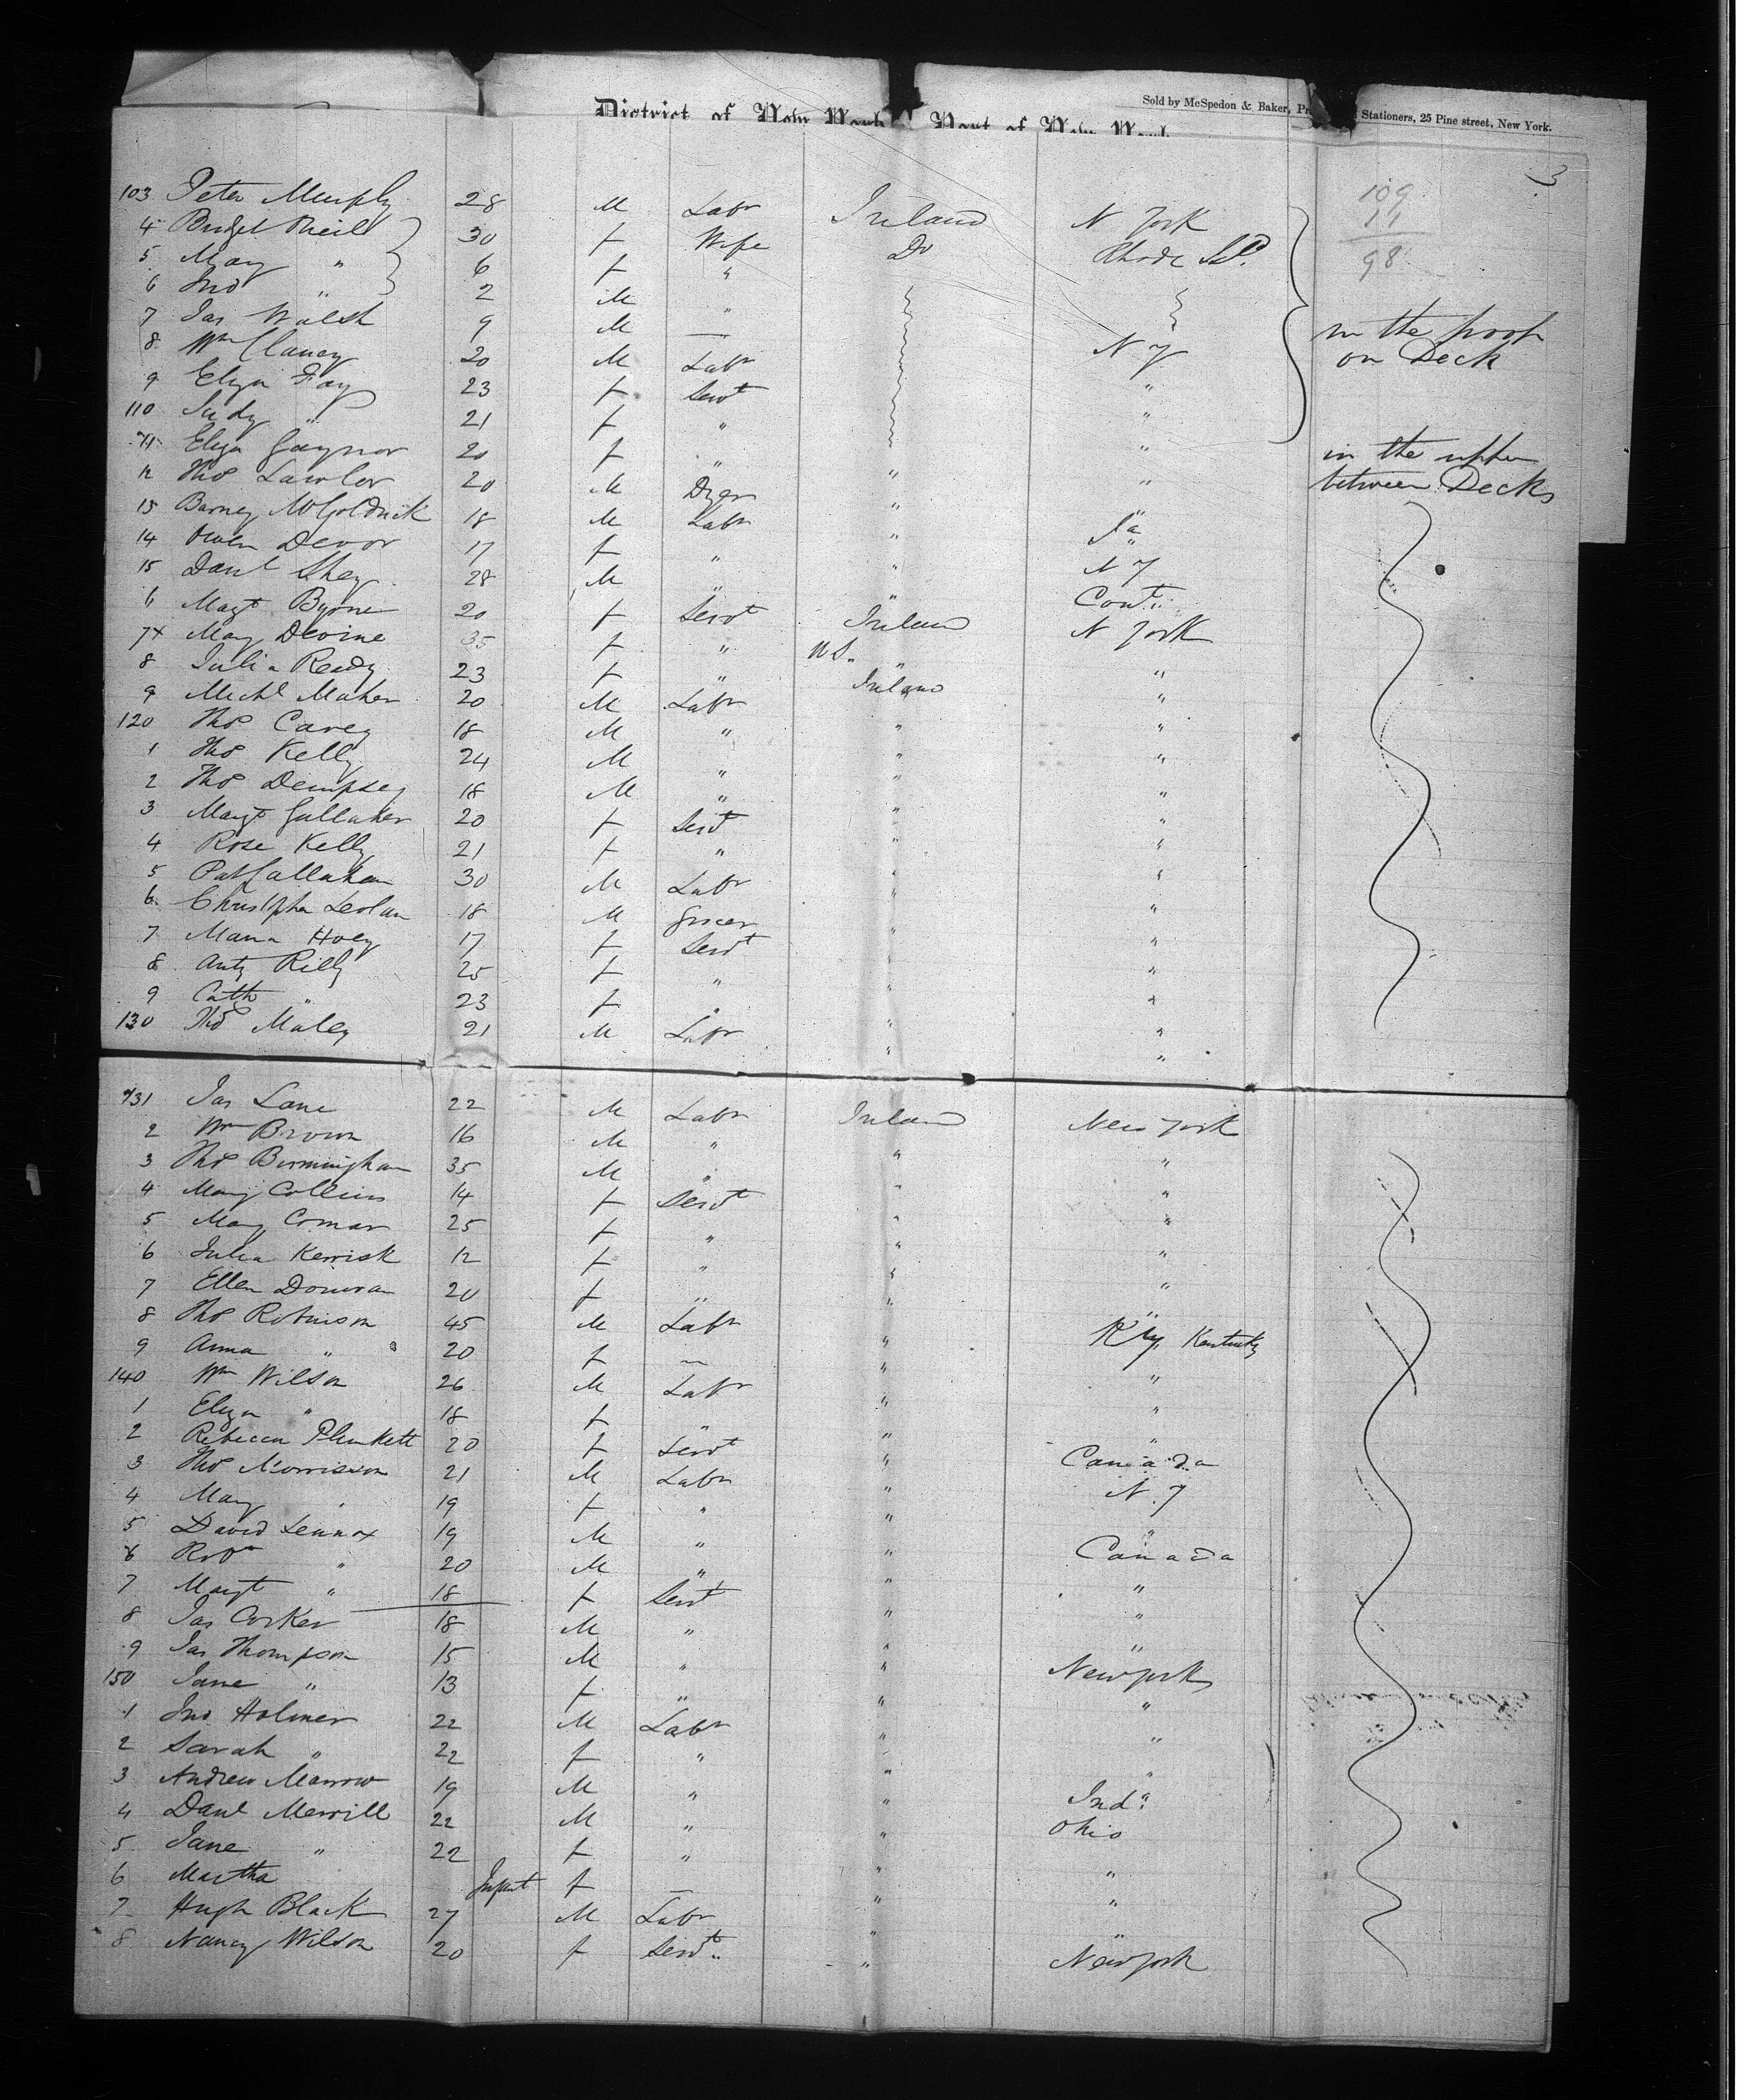 Sold by McSpedon & Baker, Stationers, 25 Pine street, New York.
District of New York Port of New York
3
109
11
98
103 Peter Murphy 28 M Labr Ireland N York
4 Bridget Neill 30 f Wife Do Rhode Isd.
5 Mary " 6 f "
6 Jno " 2 M "
7 Jas Walsh 9 M —
8 Wm Clancy 20 M Labr N Y
9 Eliza Fay 23 f Servt "
110 Judy " 21 f " "
11 Eliza Gaynor 20 f " " "
12 Thos Lawlor 20 M Dyer " "
in the poop
on Deck
in the upper
between Decks
13 Barney McGoldrick 18 M Labr " "
14 Owen Devor 17 f " " N Y
15 Danl Shey 28 M " " Cont
6 Magt Byrne 20 f Servt Ireland N York
7x Mary Devine 35 f " U S. "
8 Julia Ready 23 f " Ireland "
9 Michl Maher 20 M Labr " "
120 Thos Carey 18 M " " "
1 Thos Kelly 24 M " " "
2 Thos Dempsey 18 M " " "
3 Margt Gallaher 20 f Servt " "
4 Rose Kelly 21 f " " "
5 Pat Callahan 30 M Labr " "
6 Christpher 18 M Grocer " "
7 Maria Hoey 17 f Servt " "
8 Anty Rilly 25 f " " "
9 Cath " 23 f " " "
130 Thos Maley 21 M Labr " "
131 Jas Lane 22 M Labr Ireland New York
2 Wm Brown 16 M " " "
3 Thos Birmingham 35 M " " "
4 Mary Collins 14 f Servt " "
5 Mary Comar 25 f " " "
6 Julia Kerrisk 12 f " " "
7 Ellen Donovan 20 f " " "
8 Thos Robinson 45 M Labr " Ky. Kentucky
9 Anna " 20 f — " "
140 Wm Wilson 26 M Labr " "
1 Eliza " 18 f " " "
2 Rebecca Plunkett 20 f Servt " Canada
3 Thos Morrison 21 M Labr " N. Y
4 Mary " 19 f " " "
5 David Lennox 19 M " " Canada
6 Robt " 20 M " " "
7 Margt " 18 f Servt " "
8 Jas Corker 18 M " " "
9 Jas Thompson 15 M " " New York
150 Jane " 13 f " " "
1 Jno Holmes 22 M Labr " "
2 Sarah " 22 f " " "
3 Andrew Morrow 19 M " " Inda
4 Danl Merrill 22 M " " Ohio
5 Jane " 22 f " " "
6 Martha Infant f — " "
7 Hugh Black 27 M Labr " "
8 Nancy Wilson 20 f Servt " New York